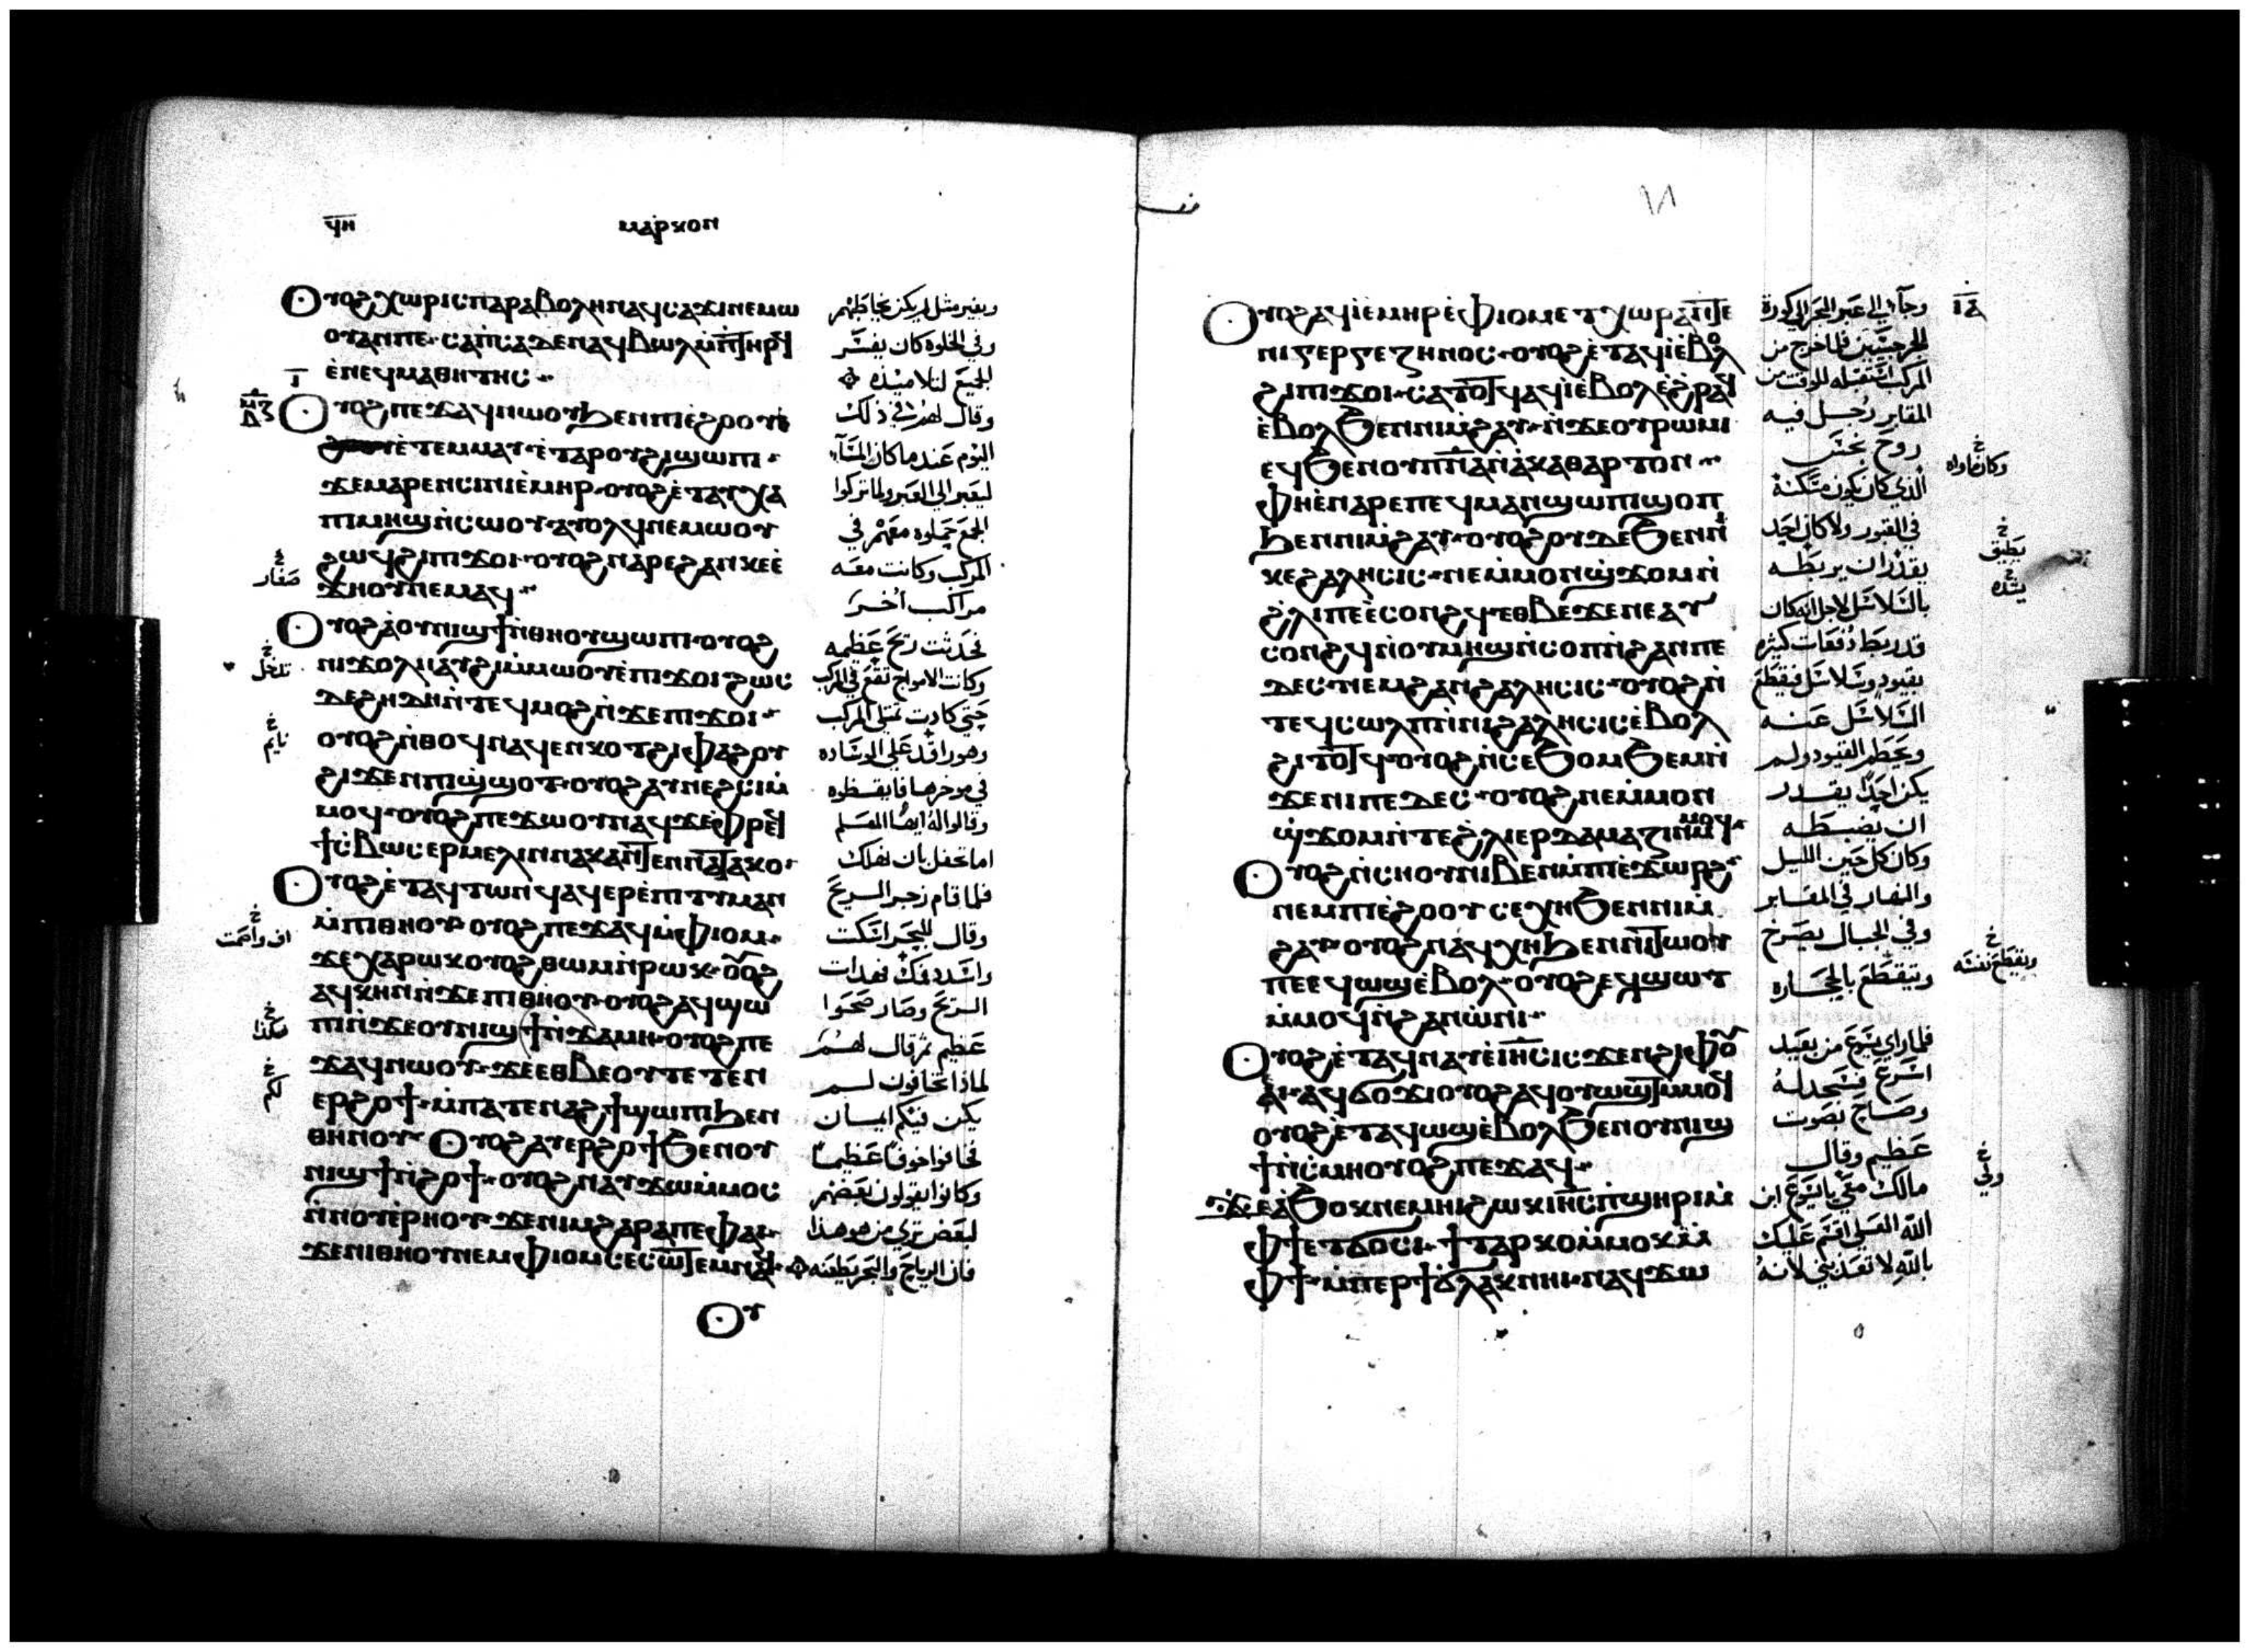 ϥⲏ
ⲙⲁⲣⲕⲟⲛ
Ⲟⲩⲟϩ ⲭⲱⲣⲓⲥ ⲡⲁⲣⲁⲃⲟⲗⲏ ⲛⲁϥⲥⲁϫⲓ ⲛⲉⲙⲱ
ⲟⲩ ⲁⲛ ⲡⲉ· ⲥⲁⲡ̀ⲥⲁ ⲇⲉ ⲛⲁϥⲃⲱⲗ
ⲉ̀ⲛⲉϥⲙⲁⲑⲏⲧⲏⲥ·
Ⲟⲩⲟϩ ⲡⲉϫⲁϥ ⲛⲱⲟⲩ ϧⲉⲛ ⲡⲓⲉ̀ϩⲟⲟⲩ
ⲉ̀ⲧⲉⲙⲙⲁⲩ· ⲉ̀ⲧⲁ ⲣⲟⲩϩⲓ ϣⲱⲡⲓ·
ϫⲉ ⲙⲁⲣⲉⲛⲥⲓⲛⲓ ⲉ̀ⲙⲏⲣ· ⲟⲩⲟϩ ⲉ̀ⲧⲁⲩⲭⲁ
ⲡⲓⲙⲏϣ ⲛ̀ⲥⲱⲟⲩ· ⲁⲩⲟⲗϥ ⲛⲉⲙⲱⲟⲩ
ϩⲱϥ ϩⲓ ⲡⲓϫⲟⲓ· ⲟⲩⲟϩ ⲛⲁⲣⲉ ϩⲁⲛⲕⲉⲉ̀
ϫⲏⲟⲩ ⲛⲉⲙⲁϥ·
Ⲟⲩⲟϩ ⲁ̀ ⲟⲩⲛⲓϣϯ ⲛ̀ⲑⲏⲟⲩ ϣⲱⲡⲓ· ⲟⲩⲟϩ
ⲛⲓϫⲟⲗ ⲛⲁⲩϩⲓ ⲙ̀ⲙⲱⲟⲩ ⲉ̀ⲡⲓϫⲟⲓ ϩⲱⲥ
ⲇⲉ ϩⲏⲇⲏ ⲛ̀ⲧⲉϥⲙⲟϩ ⲛ̀ϫⲉ ⲡⲓϫⲟⲓ·
ⲟⲩⲟϩ ⲛ̀ⲑⲟϥ ⲛⲁϥⲉⲛⲕⲟⲧ ϩⲓ ⲫⲁϩⲟⲩ
ϩⲓϫⲉⲛ ⲡⲓϣ̀ϣⲟⲧ· ⲟⲩⲟϩ ⲁⲩⲛⲉϩⲥⲓ ⲙ̀
ⲙⲟϥ· ⲟⲩⲟϩ ⲡⲉϫⲱⲟⲩ ⲛⲁϥ ϫⲉ ⲫⲣⲉϥ
ϯⲥ̀ⲃⲱ ⲥⲉⲣⲙⲉⲗⲓⲛ ⲛⲁⲕ ⲁⲛ ϫⲉ ⲧⲉⲛⲛⲁⲧⲁⲕⲟ·
Ⲟⲩⲟϩ ⲉ̀ⲧⲁϥⲧⲱⲛϥ ⲁϥⲉⲣⲉ̀ⲡⲓⲧⲩⲙⲁⲛ
ⲙ̀ⲡⲓⲑⲏⲟⲩ ⲟⲩⲟϩ ⲡⲉϫⲁϥ ⲙ̀ⲫⲓⲟⲙ·
ϫⲉ ⲭⲁⲣⲱⲕ ⲟⲩⲟϩ ⲑⲱⲙ ⲛ̀ⲣⲱⲕ· ⲟⲩⲟϩ
ⲁϥϧⲏⲛ ⲛ̀ϫⲉ ⲡⲓⲑⲏⲟⲩ· ⲟⲩⲟϩ ⲁϥϣⲱ
ⲡⲓ ⲛ̀ϫⲉ ⲟⲩⲛⲓϣϯ ⲛ̀ϫⲁⲙⲏ· ⲟⲩⲟϩ ⲡⲉ
ϫⲁϥ ⲛⲱⲟⲩ· ϫⲉ ⲉⲑⲃⲉⲟⲩ ⲧⲉⲧⲉⲛ
ⲉⲣϩⲟϯ· ⲙ̀ⲡⲁⲧⲉ ⲛⲁϩϯ ϣⲱⲡⲓ ϧⲉⲛ
ⲑⲏⲛⲟⲩ· Ⲟⲩⲟϩ ⲁⲩⲉⲣϩⲟϯ ϧⲉⲛ ⲟⲩ
ⲛⲓϣϯ ⲛ̀ϩⲟϯ· ⲟⲩⲟϩ ⲛⲁⲩϫⲱ ⲙ̀ⲙⲟⲥ
ⲛ̀ⲛⲟⲩⲉ̀ⲣⲏⲟⲩ· ϫⲉ ⲛⲓⲙ ϩⲁⲣⲁ ⲡⲉ ⲫⲁⲓ·
ϫⲉ ⲛⲓⲑⲏⲟⲩ ⲛⲉⲙ ⲫⲓⲟⲙ ⲥⲉⲥⲱⲧⲉⲙ ⲛⲁϥ·
Ⲟⲩ
وبغير مثل لم يكن يخاطبهم
وفي الخلوه كان يفسر
الجميع لتلاميذه
وقال لهم في ذلك
اليوم عند ما كان المسآ
ليعبر الى العبر ولما تركوا
الجمع حملوه معهم في
المركب وكانت معه
مراكب اخر
فحدثت ريح عظيمه
وكانت الامواج تقع في المركب
حتي كادت تمتلي المركب
وهو راقد علي الوساده
في موخرها فايقظوه
وقالوا له ايها المعلم
اما تحفل بان نهلك
فلما قام زجر الريح
وقال للبحر اسكت
واسدد فمك فهدات
الريح وصار صحوا
عظيم ثم قال لهم
لماذا تخافون لم
يكن فيكم ايمان
فخافوا خوفا عظيما
وكانوا يقولون بعضهم
لبعض تري من هو هذا
فان الرياح والبحر يطيعنه
صغار
تدخل
نايم
هكذا
لكم
Ⲟⲩⲟϩ ⲁϥⲓ̀ ⲉ̀ⲙⲏⲣ ⲉ̀ⲫⲓⲟⲙ ⲉⲧⲭⲱⲣⲁ ⲛ̀ⲧⲉ
ⲛⲓⲅⲉⲣⲅⲉⲍⲏⲛⲟⲥ· ⲟⲩⲟϩ ⲉ̀ⲧⲁϥⲓ̀ ⲉ̀ⲃⲟⲗ
ϩⲓ ⲡⲓϫⲟⲓ· ⲥⲁⲧⲟⲧϥ ⲁϥⲓ̀ ⲉ̀ⲃⲟⲗ ⲉ̀ϩⲣⲁϥ
ⲉ̀ⲃⲟⲗ ϧⲉⲛ ⲛⲓⲙ̀ϩⲁⲩ· ⲛ̀ϫⲉ ⲟⲩⲣⲱⲙⲓ
ⲉϥϧⲉⲛ ⲟⲩⲡ̅ⲛ̅ⲁ̅ ⲛ̀ⲁ̀ⲕⲁⲑⲁⲣⲧⲟⲛ·
ⲫⲏ ⲉ̀ⲛⲁⲣⲉ ⲡⲉϥⲙⲁⲛϣⲱⲡⲓ ϣⲟⲡ
ϧⲉⲛ ⲛⲓⲙ̀ϩⲁⲩ· ⲟⲩⲟϩ ⲟⲩⲇⲉ ϧⲉⲛ ⲛⲓ
ⲕⲉϩⲁⲗⲏⲥⲓⲥ· ⲛⲉ ⲙ̀ⲙⲟⲛ ϣ̀ϫⲟⲙ ⲛ̀
ϩ̀ⲗⲓ ⲡⲉ ⲉ̀ⲥⲟⲛϩϥ· ⲉⲑⲃⲉ ϫⲉ ⲛⲉ ⲁⲩ
ⲥⲟⲛϩϥ ⲛ̀ⲟⲩⲙⲏϣ ⲛ̀ⲥⲟⲡ ⲛ̀ϩⲁⲛⲡⲉ
ⲇⲉⲥ· ⲛⲉⲙ ϩⲁⲛϩⲁⲗⲏⲥⲓⲥ· ⲟⲩⲟϩ ⲛ̀
ⲧⲉϥⲥⲱⲗⲡ ⲛ̀ⲛⲓϩⲁⲗⲏⲥⲓⲥ ⲉ̀ⲃⲟⲗ
ϩⲓⲧⲟⲧϥ· ⲟⲩⲟϩ ⲛ̀ⲥⲉϧⲟⲙϧⲉⲙ ⲛ̀
ϫⲉ ⲛⲓⲡⲉⲇⲉⲥ· ⲟⲩⲟϩ ⲛⲉ ⲙ̀ⲙⲟⲛ
ϣ̀ϫⲟⲙ ⲛ̀ⲧⲉ ϩ̀ⲗⲓ ⲉⲣⲇⲁⲙⲁⲍⲓⲛ ⲙ̀ⲙⲟϥ·
Ⲟⲩⲟϩ ⲛ̀ⲥⲏⲟⲩ ⲛⲓⲃⲉⲛ ⲙ̀ⲡⲓⲉ̀ϫⲱⲣϩ·
ⲛⲉⲙ ⲡⲓⲉ̀ϩⲟⲟⲩ ⲥⲉⲭⲏ ϧⲉⲛ ⲛⲓⲙ̀
ϩⲁⲩ· ⲟⲩⲟϩ ⲛⲁϥⲭⲏ ϧⲉⲛ ⲛⲓⲧⲱⲟⲩ
ⲡⲉ ⲉϥⲱϣ ⲉ̀ⲃⲟⲗ· ⲟⲩⲟϩ ⲉϥϣⲱⲧ
ⲙ̀ⲙⲟϥ ⲛ̀ϩⲁⲛⲱ̀ⲛⲓ·
Ⲟⲩⲟϩ ⲉ̀ⲧⲁϥⲛⲁⲩ ⲉ̀ⲓⲏⲥ ϫⲉⲛ ϩⲓ ⲫⲟⲩ
ⲉⲓ· ⲁϥϭⲟϫⲓ ⲟⲩⲟϩ ⲁϥⲟⲩⲱϣⲧ ⲙ̀ⲙⲟϥ
ⲟⲩⲟϩ ⲉ̀ⲧⲁϥⲱϣ ⲉ̀ⲃⲟⲗ ϧⲉⲛ ⲟⲩⲛⲓϣ
ϯ ⲛ̀ⲥ̀ⲙⲏ ⲟⲩⲟϩ ⲡⲉϫⲁϥ·
ϫⲉ ⲁ̀ϧⲟⲕ ⲛⲉⲙⲏⲓ ϩⲱⲕ ⲓⲏⲥ ⲡ̀ϣⲏⲣⲓ ⲙ̀
ⲫϯ ⲉⲧϭⲟⲥⲓ· ϯⲧⲁⲣⲕⲟ ⲙ̀ⲙⲟⲕ ⲙ̀
ⲫϯ· ⲙ̀ⲡⲉⲣϯⲃ̀ⲗⲁⲕ ⲛⲏⲓ· ⲛⲁϥϫⲱ
وجآ الي عبر البحر الي كورة
الجرجسيين فلما خرج من
المركب استقبله للوقت من
المقابر رجل فيه
روح نجس
الذي كان يكون مسكنه
في القبور ولا كان احد
يقدر ان يربطه
بالسلاسل لاجل انه كان
قد ربط دفعات كثيره
بقيود وسلاسل فيقطع
السلاسل عنه
ويحطم القيود ولم
يكن احد يقدر
ان يضبطه
وكان كل حين الليل
والنهار في المقابر
وفي الجبال يصرخ
ويتقطع بالحجاره
فلما راي يسوع من بعيد
اسرع فسجد له
وصاح بصوت
عظيم وقال
مالك معي يا يسوع ابن
الله العلي اقسم عليك
بالله لا تعذبني لانه
وكان ماواه
يطيق
يشده
ويقطع نفسه
ولي